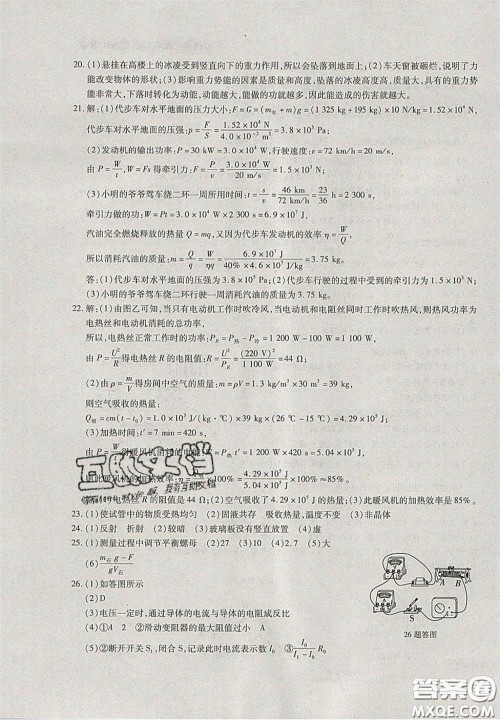 20. (1)悬挂在高楼上的冰凌受到竖直向下的重力作用,所以会坠落到地面上;(2)车天窗被砸烂,说明了力
能改变物体的形状;(3)影响重力势能的因素是质量和高度,坠落的冰凌高度高,质量大,重力势
能非常大,下落时转化为动能,动能大,做的功就越多,因此能造成非常大的伤害。
21. 解:(1)代步车对水平地面的压力大小:F=G=(m车+m)g=(1 325 kg+195 kg)×10 N/kg=1.52×10⁴ N
代步车对水平地面的压强:p=F/S=1.52×10⁴ N/4.0×10⁻² m²=3.8×10⁵ Pa;
(2)发动机的输出功率:P=30 kW=3.0×10⁴ W,行驶速度:v=72 km/h=20 m/s,
由 P=W/t,W=Fs 得牵引力:F=P/v=3.0×10⁴ W/20 m/s=1.5×10³ N;
(3)小明的爷爷驾车绕二环一周所用时间:t=s/v=46 km/72 km/h=23/36 h=2 300 s,
牵引力做的功:W=Pt=3.0×10⁴ W×2 300 s=6.9×10⁷ J
汽油完全燃烧释放的热量 Q=mq,又因为代步车发动机的效率 η=W/Q
消耗汽油的质量:m=W/ηq=6.9×10⁷ J/40%×4.6×10⁷ J/kg=3.75 kg。
答:(1)代步车对水平地面的压强为3.8×10⁵ Pa;(2)代步车行驶过程中受到的牵引力为1.5×10³ N;
(3)小明的爷爷驾车绕二环行驶一周消耗汽油的质量为3.75 kg。
22. 解:(1)由图乙可知,当只有电动机工作时吹冷风,当电动机和电阻丝同时工作时吹热风,则热风功率为
电热丝和电动机消耗的总功率,
电热丝正常工作时的功率:PR=P热-P冷=1 200 W-100 W=1 100 W
由 P=U²/R 得电热丝 R 的电阻值:R=U²/PR=(220 V)²/1 100 W=44 Ω;
(2)由 ρ=m/V 得房间中空气的质量:m=ρV=1.3 kg/m³×30 m³=39 kg,
则空气吸收的热量:
Q吸=cm(t-t₀)=1.0×10³ J/(kg·℃)×39 kg×(21 ℃-10 ℃)=4.29×10⁵ J;
(3)加热时间:t′=7 min=420 s,
1 200 W×420 s=5.04×10⁵ J,
×100%=4.29×10⁵ J/5.04×10⁵ J×100%≈85%。
电热丝的电阻是44 Ω;(2)空气吸收了4.29×10⁵ J的热量;(3)此暖风机的加热效率是85%。
23. (1)使试管中的物质受热均匀 (2)固液共存 吸收热量 (3)非晶体
24. (1)反射 折射 (2)较暗 (3)玻璃板没有竖直放置 (4)虚
25. (1)测量过程中调节平衡螺母 (2)27 (3)10 (4)2.7 (5)不变 大
(6)m石g-F/gV石
26. (1)如答图所示
(2)D
(3)电压一定时,通过导体的电流与导体的电阻成反比
(4)①A 2 ②滑动变阻器的最大阻值过小 A
(5)②断开开关S₁,闭合S,记录此时电流表示数 ③I₀/I-I₀ R₀
A B
S
26题答图
答案圈
MXQE.COM